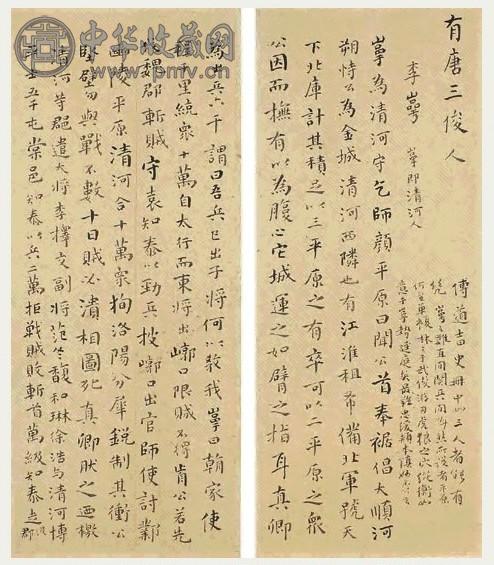 有唐三俊人
李萼 萼即清河人
萼為清河守乞師顏平原曰聞公首奉裾倡大順河
朔恃公為金城清河西隣也有江淮租布備北軍號天
下北庫計其積足以三平原之有卒可以二平原之眾
公因而撫有以為腹心它城運之如臂之指耳真卿
為出兵六千謂曰吾兵已出子將何以教我萼曰朝家使
程千里統眾十萬自太行而東將出崞口限賊不得前公若先
伐魏郡斬賊守袁知泰以勁兵披崞口出官師使討鄴
幽陵平原清河合十萬眾徇洛陽分犀銳制其衝公
堅壁勿與戰不數十日賊必潰相圖死真卿然之遣檄
清河等郡遣大將李擇交副將范冬馥和琳徐浩與清河博
平士五千屯棠邑知泰以兵二萬拒戰賊敗斬首萬級知泰走汲郡
中华收藏网